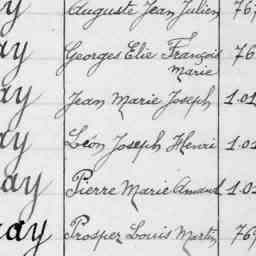 y Auguste Jean Julien 76
ay Georges Elie François 76
Marie
ay Jean Marie Joseph 1.01
ay Léon Joseph Henri 1.01
ay Pierre Marie Amand 1.01
ay Prosper Louis Martin 76